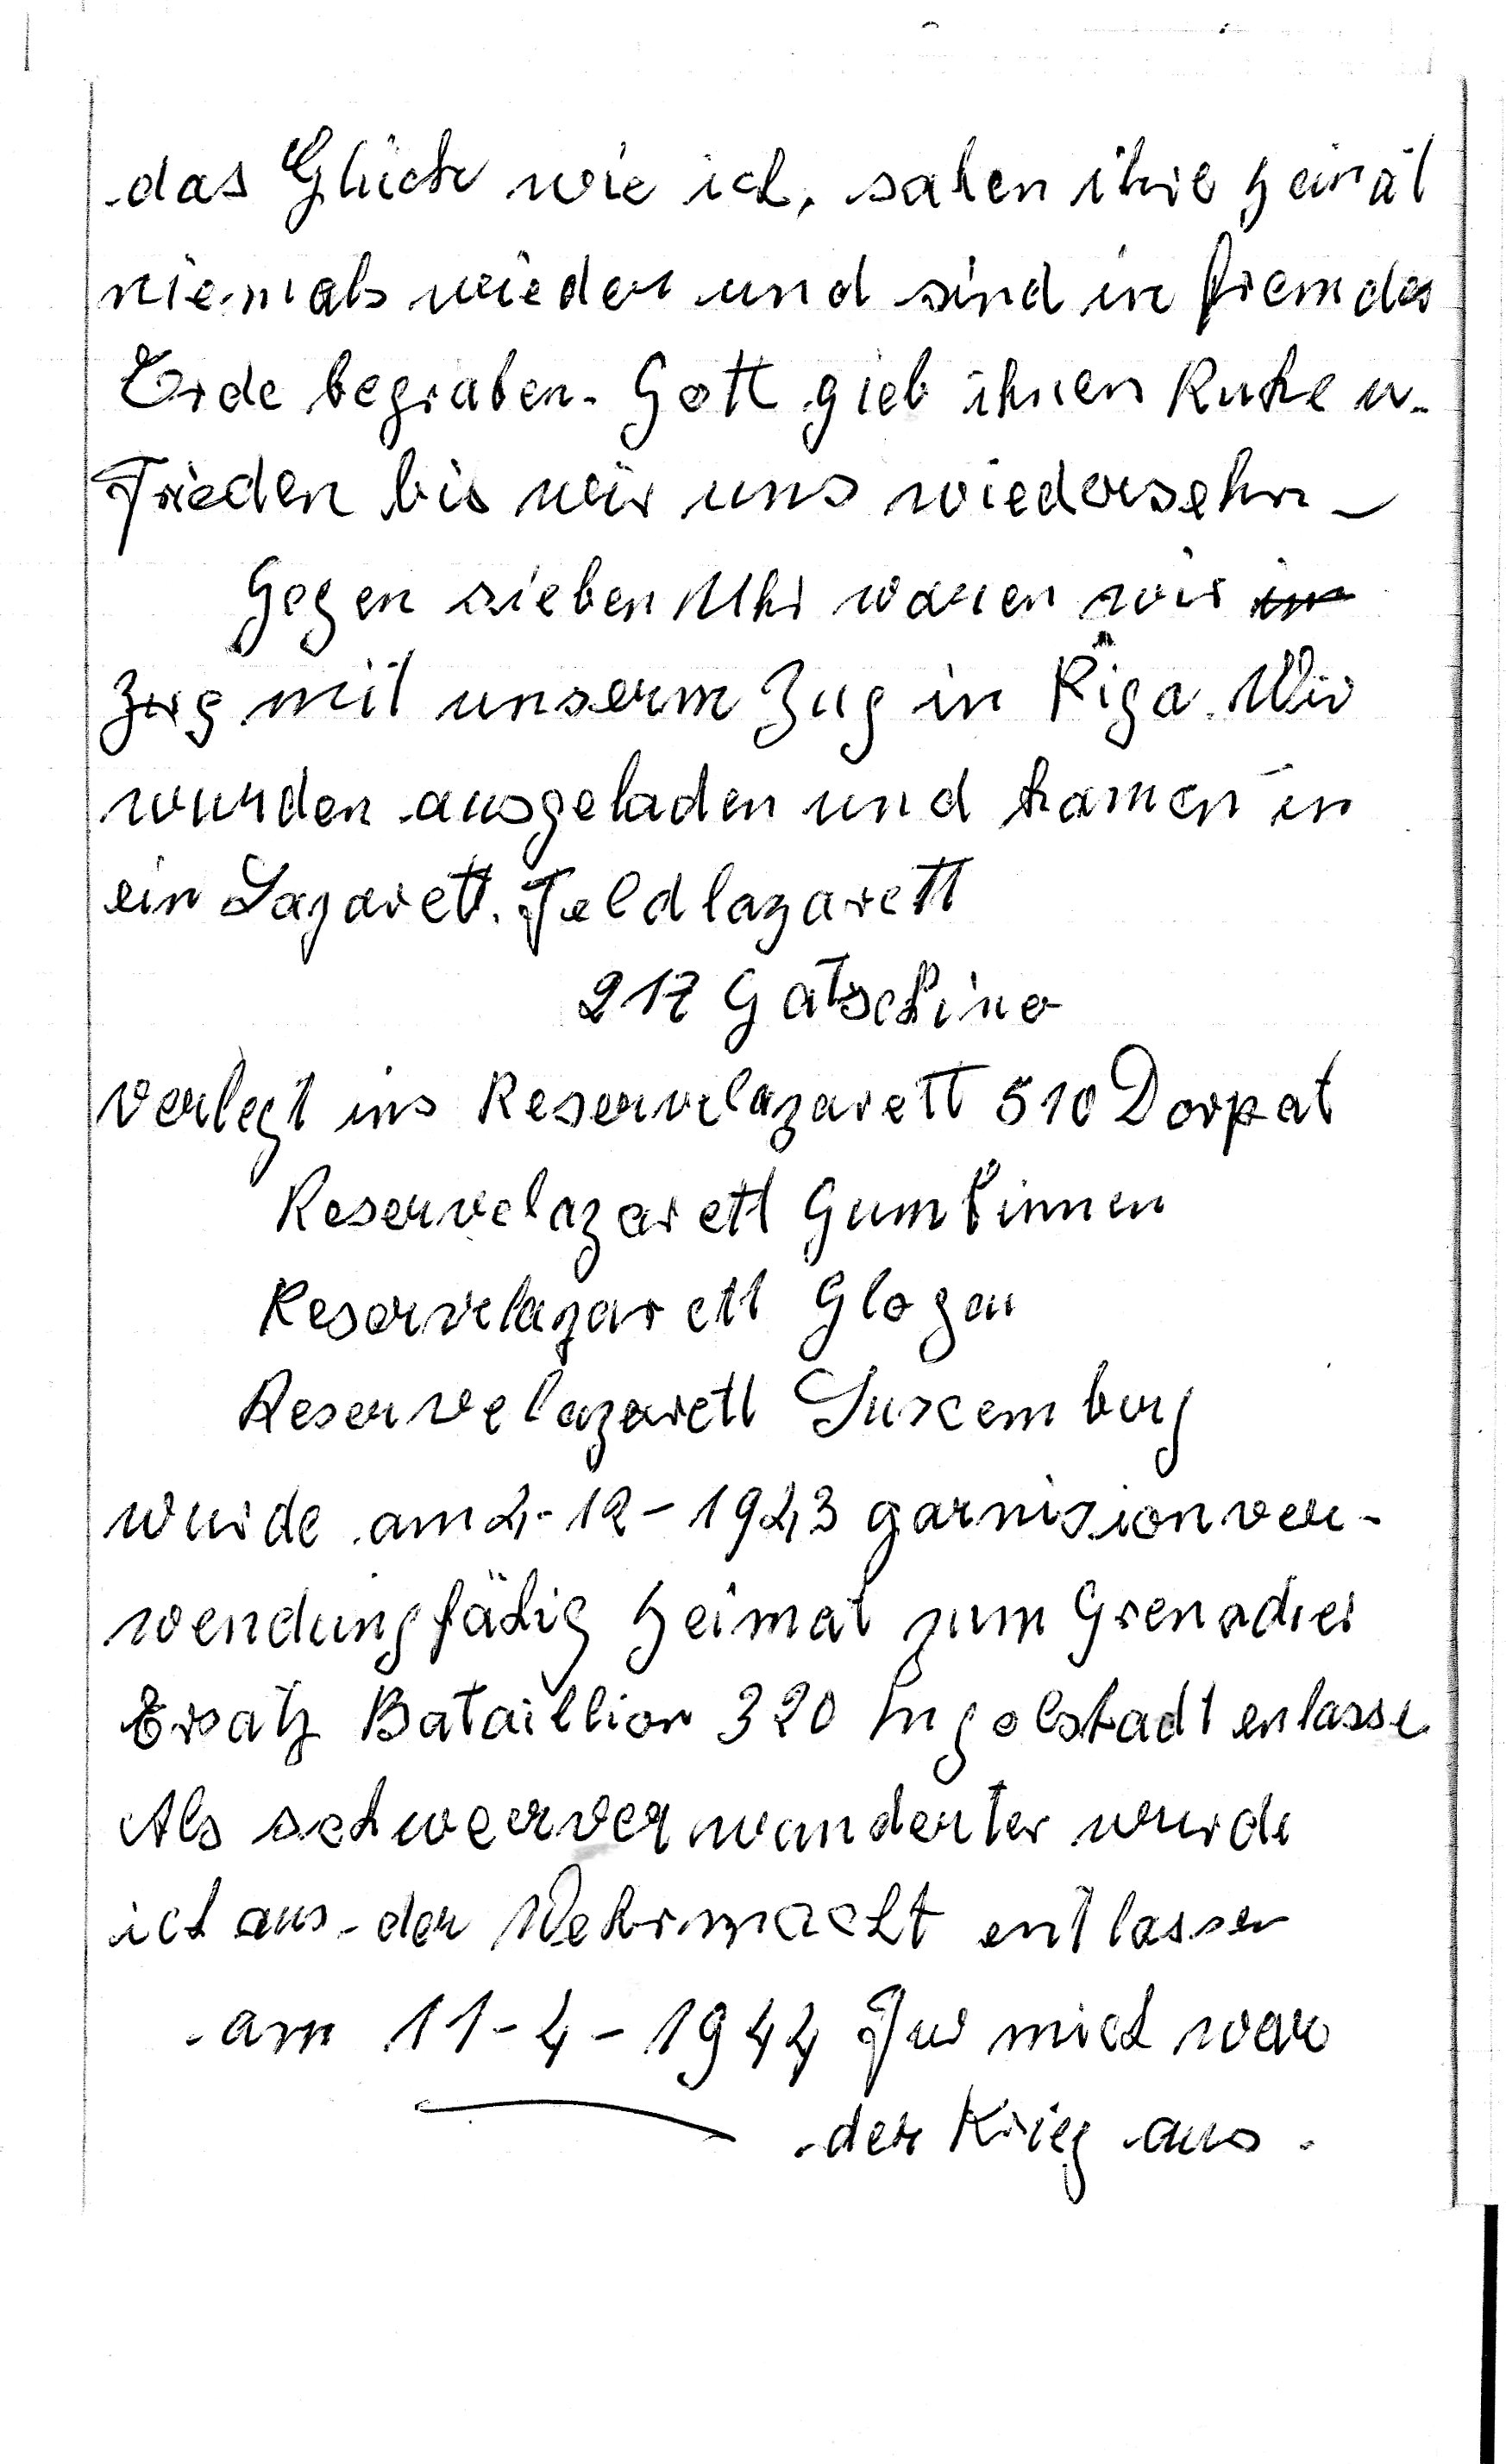 das Glück wie ich, sahen ihre Heimat
niemals wieder und sind in fremder
Erde begraben. Gott gieb ihnen Ruhe u.
Frieden bis wir uns wiedersehn –
Gegen sieben Uhr waren wir im
Zug mit unserm Zug in Riga. Wir
wurden ausgeladen und kamen in
ein Lazarett. Feldlazarett
217 Gatschina
verlegt ins Reservelazarett 510 Dorpat
Reservelazarett Gumbinnen
Reservelazarett Glogau
Reservelazarett Luxemburg
wurde am 4-12-1943 garnisionver-
wendungfähig Heimat zum Grenadier
Ersatz Bataillion 320 Ingolstadt enlasse
Als schwerverwunderter wurde
ich aus der Wehrmacht entlassen
am 11-4-1944 Für mich war
der Krieg aus.